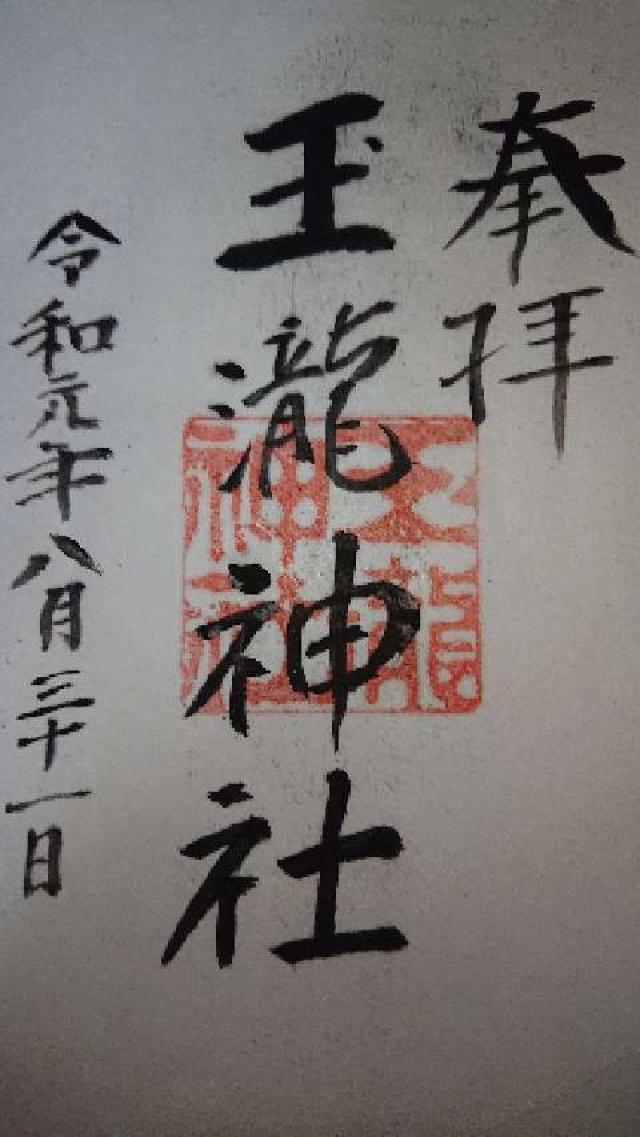 奉拝
玉瀧神社
令和元年八月三十一日